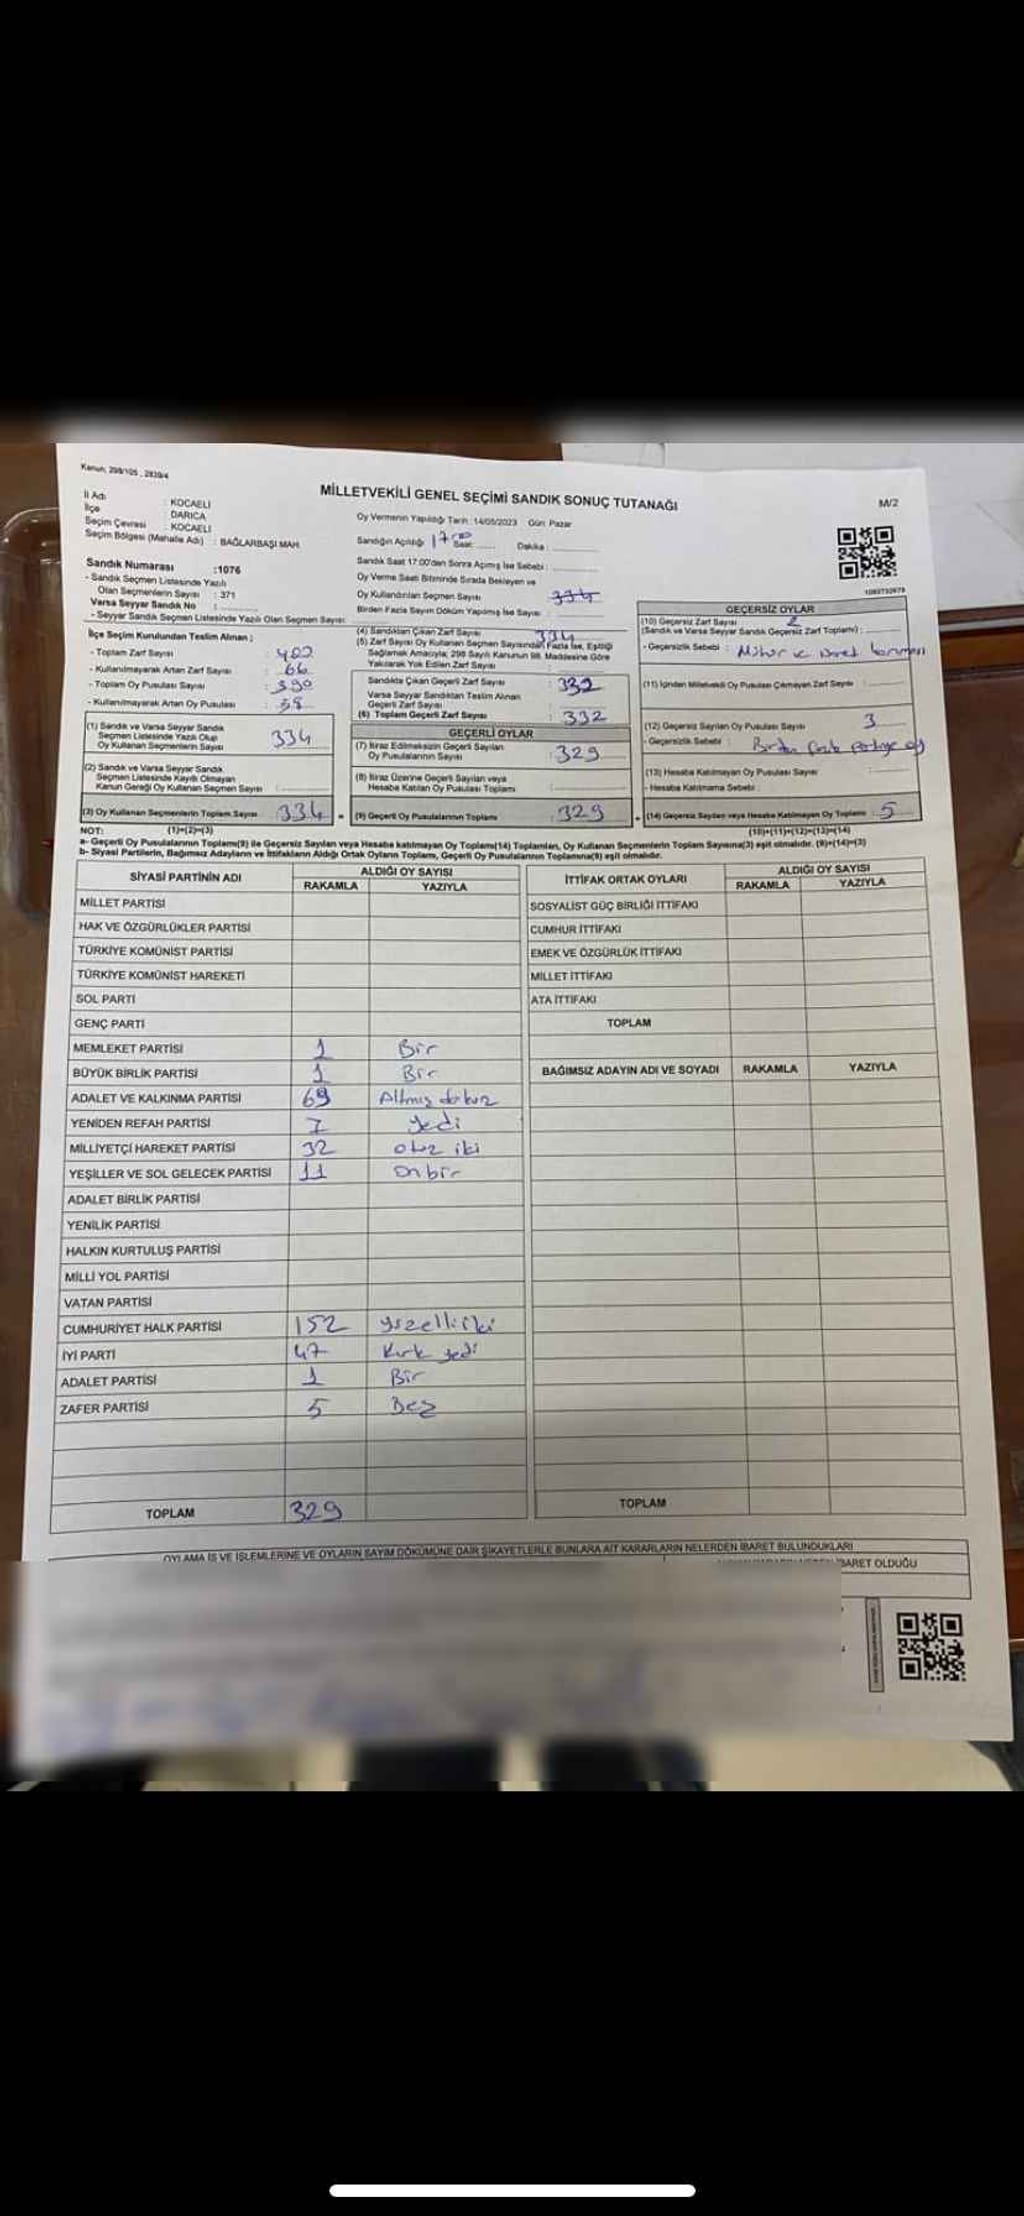 Kanun: 298/105 , 2839/4
MİLLETVEKİLİ GENEL SEÇİMİ SANDIK SONUÇ TUTANAĞI
M/2
İl Adı : KOCAELİ
İlçe : DARICA
Seçim Çevresi : KOCAELİ
Seçim Bölgesi (Mahalle Adı) : BAĞLARBAŞI MAH.
Sandık Numarası :1076
- Sandık Seçmen Listesinde Yazılı
Olan Seçmenlerin Sayısı : 371
Varsa Seyyar Sandık No :
- Seyyar Sandık Seçmen Listesinde Yazılı Olan Seçmen Sayısı:
Oy Vermenin Yapıldığı Tarih: 14/05/2023 Gün: Pazar
Sandığın Açıldığı 17 00 Saat: Dakika :
Sandık Saat 17:00'den Sonra Açılmış İse Sebebi :
Oy Verme Saati Bitiminde Sırada Bekleyen ve
Oy Kullandırılan Seçmen Sayısı 334
Birden Fazla Sayım Döküm Yapılmış İse Sayısı :
İlçe Seçim Kurulundan Teslim Alınan ;
- Toplam Zarf Sayısı : 402
- Kullanılmayarak Artan Zarf Sayısı : 66
- Toplam Oy Pusulası Sayısı : 390
- Kullanılmayarak Artan Oy Pusulası : 58
(1) Sandık ve Varsa Seyyar Sandık
Seçmen Listesinde Yazılı Olup
Oy Kullanan Seçmenlerin Sayısı 334
(2) Sandık ve Varsa Seyyar Sandık
Seçmen Listesinde Kayıtlı Olmayan
Kanun Gereği Oy Kullanan Seçmen Sayısı :
(3) Oy Kullanan Seçmenlerin Toplam Sayısı 334 =
(4) Sandıktan Çıkan Zarf Sayısı 334
(5) Zarf Sayısı Oy Kullanan Seçmen Sayısından Fazla İse, Eşitliği
Sağlamak Amacıyla; 298 Sayılı Kanunun 98. Maddesine Göre
Yakılarak Yok Edilen Zarf Sayısı
Sandıkta Çıkan Geçerli Zarf Sayısı : 332
Varsa Seyyar Sandıktan Teslim Alınan
Geçerli Zarf Sayısı
(6) Toplam Geçerli Zarf Sayısı : 332
GEÇERLİ OYLAR
(7) İtiraz Edilmeksizin Geçerli Sayılan
Oy Pusulalarının Sayısı : 329
(8) İtiraz Üzerine Geçerli Sayılan veya
Hesaba Katılan Oy Pusulası Toplamı :
(9) Geçerli Oy Pusulalarının Toplamı : 329 +
1093732678
GEÇERSİZ OYLAR
(10) Geçersiz Zarf Sayısı 2
(Sandık ve Varsa Seyyar Sandık Geçersiz Zarf Toplamı) :
- Geçersizlik Sebebi : Mühür ve
(11) İçinden Milletvekili Oy Pusulası Çıkmayan Zarf Sayısı :
(12) Geçersiz Sayılan Oy Pusulası Sayısı 3
- Geçersizlik Sebebi : Birden fazla partiye oy
(13) Hesaba Katılmayan Oy Pusulası Sayısı :
- Hesaba Katılmama Sebebi :
(14) Geçersiz Sayılan veya Hesaba Katılmayan Oy Toplamı : 5
NOT: (1)+(2)=(3) (10)+(11)+(12)+(13)=(14)
a- Geçerli Oy Pusulalarının Toplamı(9) ile Geçersiz Sayılan veya Hesaba katılmayan Oy Toplamı(14) Toplamları, Oy Kullanan Seçmenlerin Toplam Sayısına(3) eşit olmalıdır. (9)+(14)=(3)
b- Siyasi Partilerin, Bağımsız Adayların ve İttifakların Aldığı Ortak Oyların Toplamı, Geçerli Oy Pusulalarının Toplamına(9) eşit olmalıdır.
SİYASİ PARTİNİN ADI ALDIĞI OY SAYISI
RAKAMLA YAZIYLA
MİLLET PARTİSİ
HAK VE ÖZGÜRLÜKLER PARTİSİ
TÜRKİYE KOMÜNİST PARTİSİ
TÜRKİYE KOMÜNİST HAREKETİ
SOL PARTİ
GENÇ PARTİ
MEMLEKET PARTİSİ 1 Bir
BÜYÜK BİRLİK PARTİSİ 1 Bir
ADALET VE KALKINMA PARTİSİ 69 Altmış dokuz
YENİDEN REFAH PARTİSİ 7 yedi
MİLLİYETÇİ HAREKET PARTİSİ 32 otuz iki
YEŞİLLER VE SOL GELECEK PARTİSİ 11 onbir
ADALET BİRLİK PARTİSİ
YENİLİK PARTİSİ
HALKIN KURTULUŞ PARTİSİ
MİLLİ YOL PARTİSİ
VATAN PARTİSİ
CUMHURİYET HALK PARTİSİ 152 yüzelliiki
İYİ PARTİ 47 Kırk yedi
ADALET PARTİSİ 1 Bir
ZAFER PARTİSİ 5 Beş
TOPLAM 329
İTTİFAK ORTAK OYLARI ALDIĞI OY SAYISI
RAKAMLA YAZIYLA
SOSYALİST GÜÇ BİRLİĞİ İTTİFAKI
CUMHUR İTTİFAKI
EMEK VE ÖZGÜRLÜK İTTİFAKI
MİLLET İTTİFAKI
ATA İTTİFAKI
TOPLAM
BAĞIMSIZ ADAYIN ADI VE SOYADI RAKAMLA YAZIYLA
TOPLAM
OYLAMA İŞ VE İŞLEMLERİNE VE OYLARIN SAYIM DÖKÜMÜNE DAİR ŞİKAYETLERLE BUNLARA AİT KARARLARIN NELERDEN İBARET BULUNDUKLARI
İBARET OLDUĞU